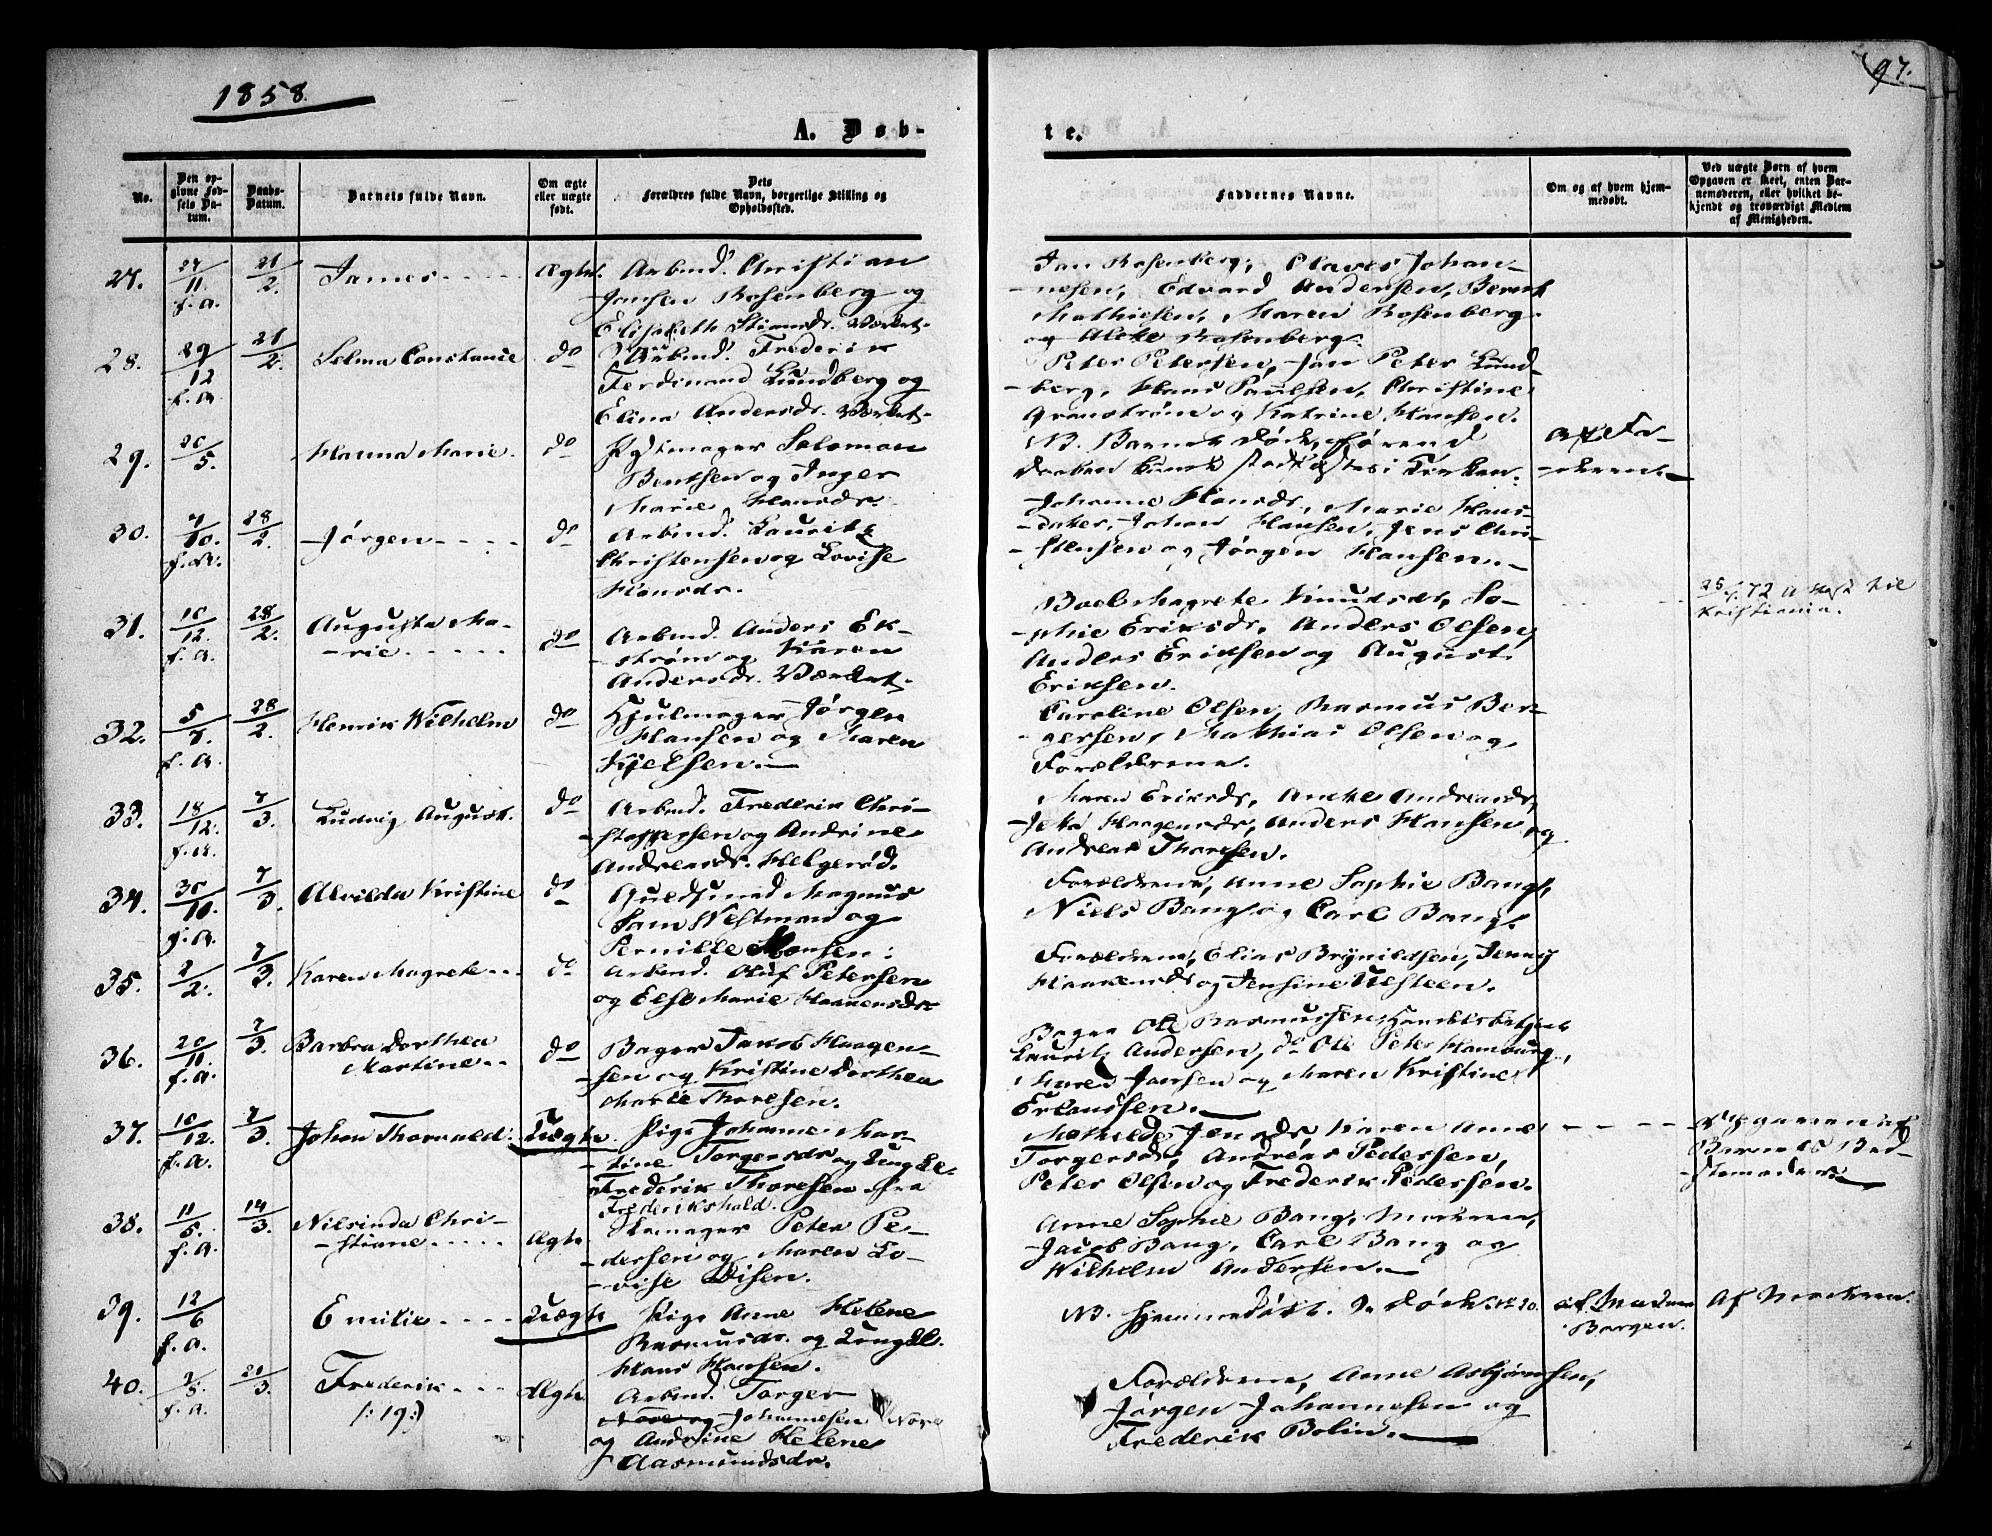 1858.
97.
A. Døb-
te.
No.
Den op-
givne Fød-
sels Da-
tum.
Daabs-
Datum.
Barnets fulde Navn.
Om ægte
eller uægte
født.
Dets
Forældres fulde Navn, borgerlige Stilling og
Opholdssted.
Faddernes Navne.
Om og af hvem hjem-
medøbt.
Ved uægte Børn af hvem
Opgaven er skeet, enten Bar-
nemoderen, eller hvilket be-
kjendt og troværdigt Medlem
af Menigheden.
27.
27/11 f.a.
21/2.
James
Ægte.
Arbmd. Christian
Jansen Rosenberg og
Elisabeth Stiansdr. Værket
Jan Rosenberg, Olaves Johan-
nesen, Edvard Andersen, Bernt
Mathiesen, Maren Rosenberg
og Rosenberg.
28.
29/12 f.a.
21/2.
Selma Constance
do
Arbmd. Frederik
Ferdinand Lundberg og
Elina Andersdr. Værket
Peter Petersen, Jan Peter Lund-
berg, Hans Paulsen, Christine
Granstrøm og Katrine Hansen.
29.
20/5.
Hanna Marie.
do
Salomon
Bentsen og Inger
Marie Hansdr.
NB. Barnet død, førend
Daaben kunde stadfæstes i Kirken.
af Fa-
deren.
30.
7/10. f.a.
28/2.
Jørgen
do
Arbmd. Laurits
Christensen og Lovise
Hansdr.
Johanne Hansdr, Marie Hans-
dater, Johan Hansen, Jens Chri-
stensen og Jørgen Hansen.
31.
10/12. f.a.
28/2.
Augusta Ma-
rie
do
Arbmd. Anders Ek-
strøm og Karen
Andersdr. Værket
Boel Magrete Knudsdr, So-
phie Eriksdr, Anders Olsen,
Anders Eriksen og August
Eriksen.
25/ 72 Attest til
Kristiania.
32.
5/7. f.a.
28/2.
Henrik Wilhelm
do
Hjulmager Jørgen
Hansen og Maren
Kjelsen.
Caroline Olsen, Rasmus Bør-
gersen, Mathias Olsen og
Forældrene.
33.
18/12. f.a.
7/3.
Ludvig August.
do
Arbmd. Frederik Chri-
stoffersen og Andrine
Andreasdr. Helgerød.
Maren Eriksdr, Andreasdr,
Haagensdr, Anders Hansen og
Andreas Thoresen.
34.
30/10. f.a.
7/3.
Alvilda Kristine
do
Guldsmed Magnus
Sam Westman og
Pernille Hansen:
Forældrene, Anne Sophie Bang,
Niels Bang og Carl Bang.
35.
2/2.
7/3.
Karen Magrete
do
Arbmd. Oluf Petersen
og Else Marie Haakensdr
Forældrene, Elias Brynildsen, Jenny
Haakensdr og Jensine Nesteen.
36.
20/11. f.a.
7/3.
Barbra Dorthea
Martine
do
Bager Jakob Haagen-
sen og Kristine Dorthea
Marie Thoresen.
Bager Ole Rasmussen, Handelsbetjent
Laurits Andersen, do Ole Peter Hamburg,
Maren Jansen og Maren Kristine
Erlandsen.
37.
10/12. f.a.
7/3.
Johan Thorvald.
Uægte.
Pige Johanne Mar-
tine Torgersdr og Ungkl.
Frederik Thoresen fra
Frederikshald.
Mathilde Jensdr, Karen Anne
Torgersdr, Andreas Pedersen,
Peter Olsen og Frederik Pedersen.
Opgaven af
Barnets Bed-
stemoder.
38.
11/5. f.a.
14/3.
Nilsinda Chri-
stiane
Ægte
Skomager Peter Pe-
dersen og Maren Lo-
vise Disen.
Anne Sophie Bang, Moderen,
Jacob Bang, Carl Bang og
Wilhelm Andersen.
39.
12/6 f.a.
Emilie
Uægte
Pige Anne Helene
Rasmusdr. og Ungkl.
Hans Hansen.
NB. Hjemmedøbt. Død No. 20.
af Madam
Borgen.
Af Moderen.
40.
2/5. f.a.
21/3.
Frederik
/:19:/
Ægte
Arbmd. Torger
Johannesen Nore
og Andrine Helene
Aasmundsdr.
Forældrene, Anne Asbjørnsen,
Jørgen Johannesen og
Frederik Bolin.